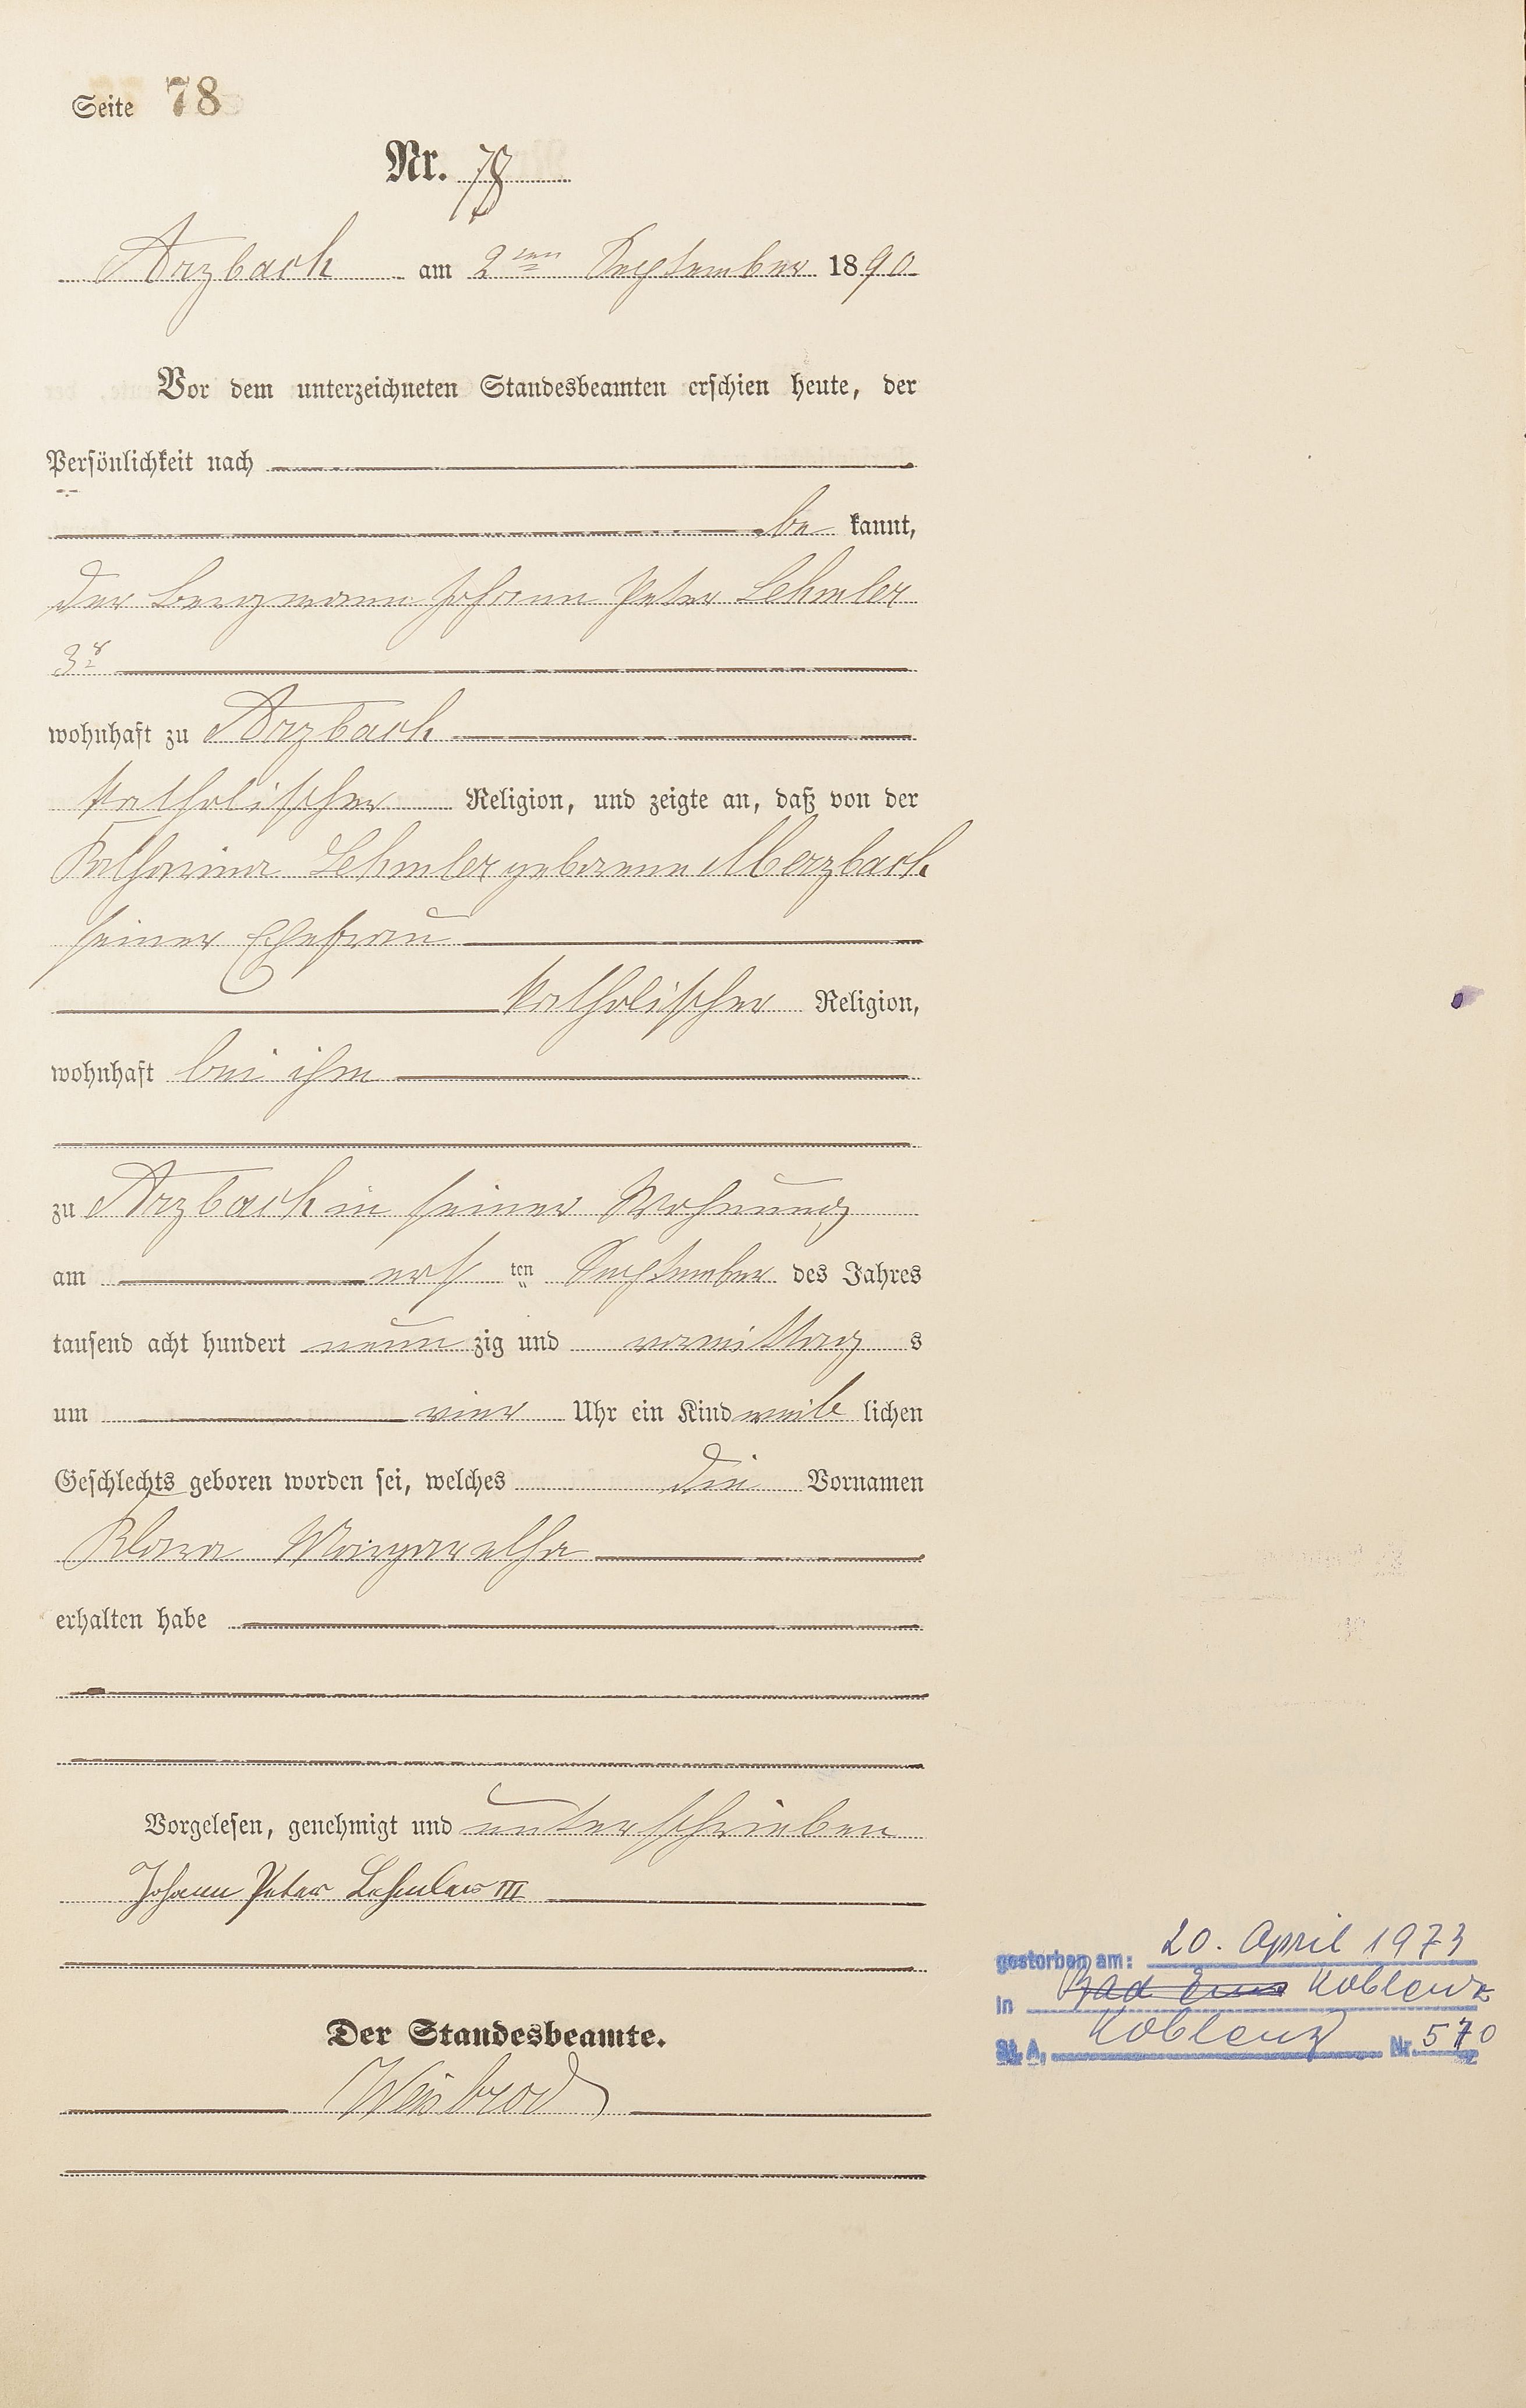 Seite 78
Nr. 78
Arzbach am 2ten September 1890
Vor dem unterzeichneten Standesbeamten erschien heute, der
Persönlichkeit nach
be kannt,
der Bergmann Johann Peter Lehmler
3r
wohnhaft zu Arzbach
katholischer Religion, und zeigte an, daß von der
Katharina Lehmler geborene Merzbach
seiner Ehefrau
katholischer Religion,
wohnhaft bei ihm
zu Arzbach in seiner Wohnung
am ers ten September des Jahres
tausend acht hundert neun zig und vormittag s
um vier Uhr ein Kind weib lichen
Geschlechts geboren worden sei, welches die Vornamen
Klara Margaretha
erhalten habe
Vorgelesen, genehmigt und unterschrieben
Johann Peter Lehmler III
Der Standesbeamte.
Weisbrod
gestorben am: 20. April 1973
in Bad Ems Koblenz
St. A. Koblenz Nr. 570